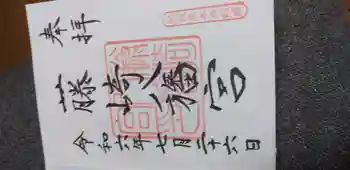 奉拝
藤崎八旛宮
令和六年七月二十六日